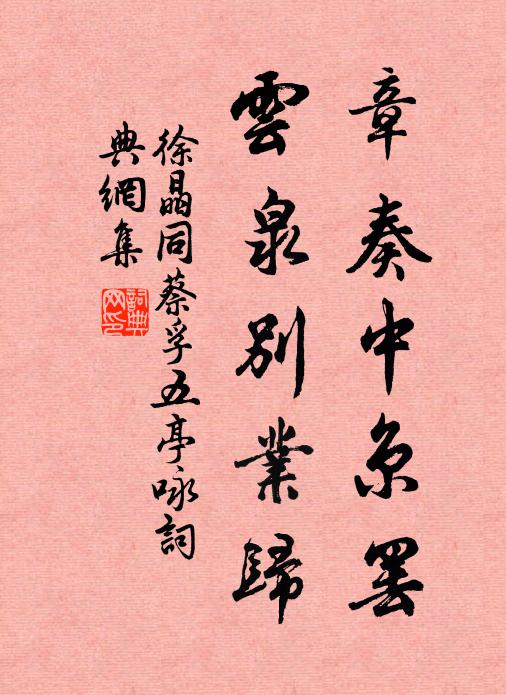 章奏中京罷
雲泉別業歸
徐晶同蔡孚五亭咏詞
典網集
詞典網印